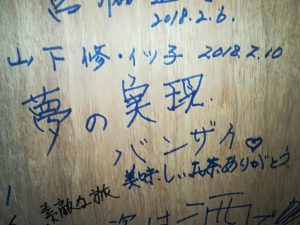 2018.2.6.
山下 修・イツ子 2018.2.10
夢の実現.
バンザイ♡
美味しいお茶ありがとう
素敵な旅
次は酒で